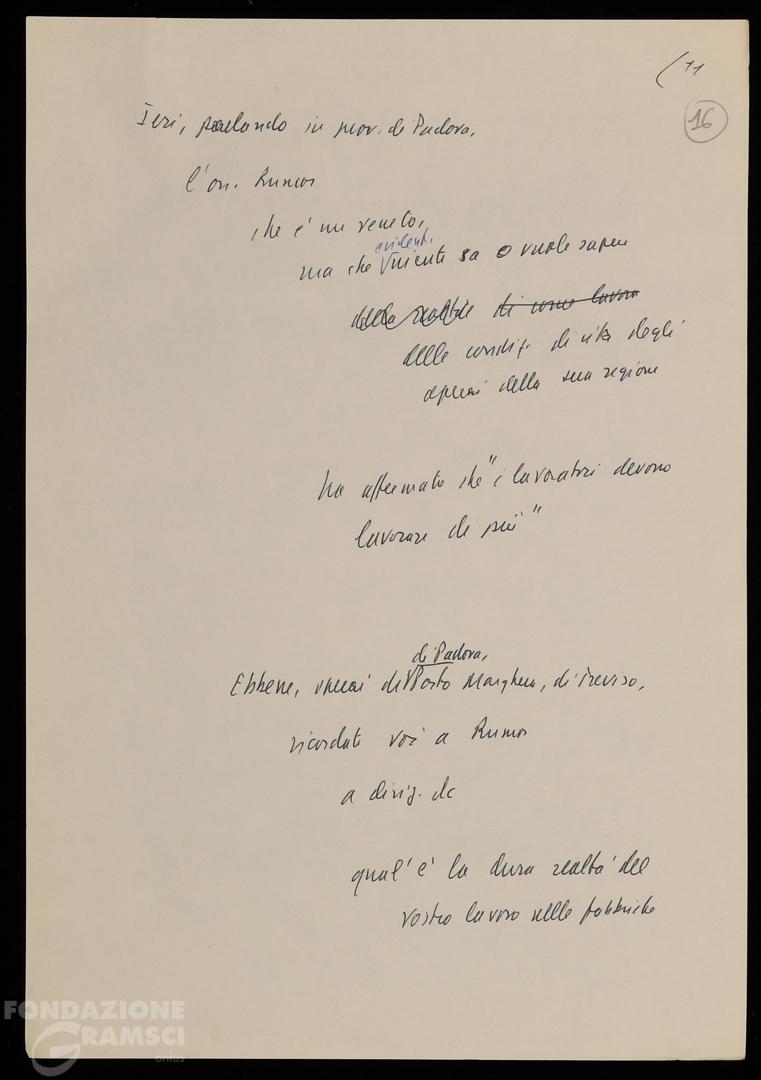 (11
16
Ieri, parlando in prov. di Padova,
l'on. Rumor
che è un veneto,
evident.
ma che niente sa o vuole sapere
della realtà di come lavora
delle condiz. di vita degli
operai della sua regione
ha affermato che "i lavoratori devono
lavorare di più"
di Padova,
Ebbene, operai di Porto Marghera, di Treviso,
ricordate voi a Rumor
a dirig. dc
qual'è la dura realtà del
vostro lavoro nelle fabbriche
FONDAZIONE
GRAMSCI
onlus